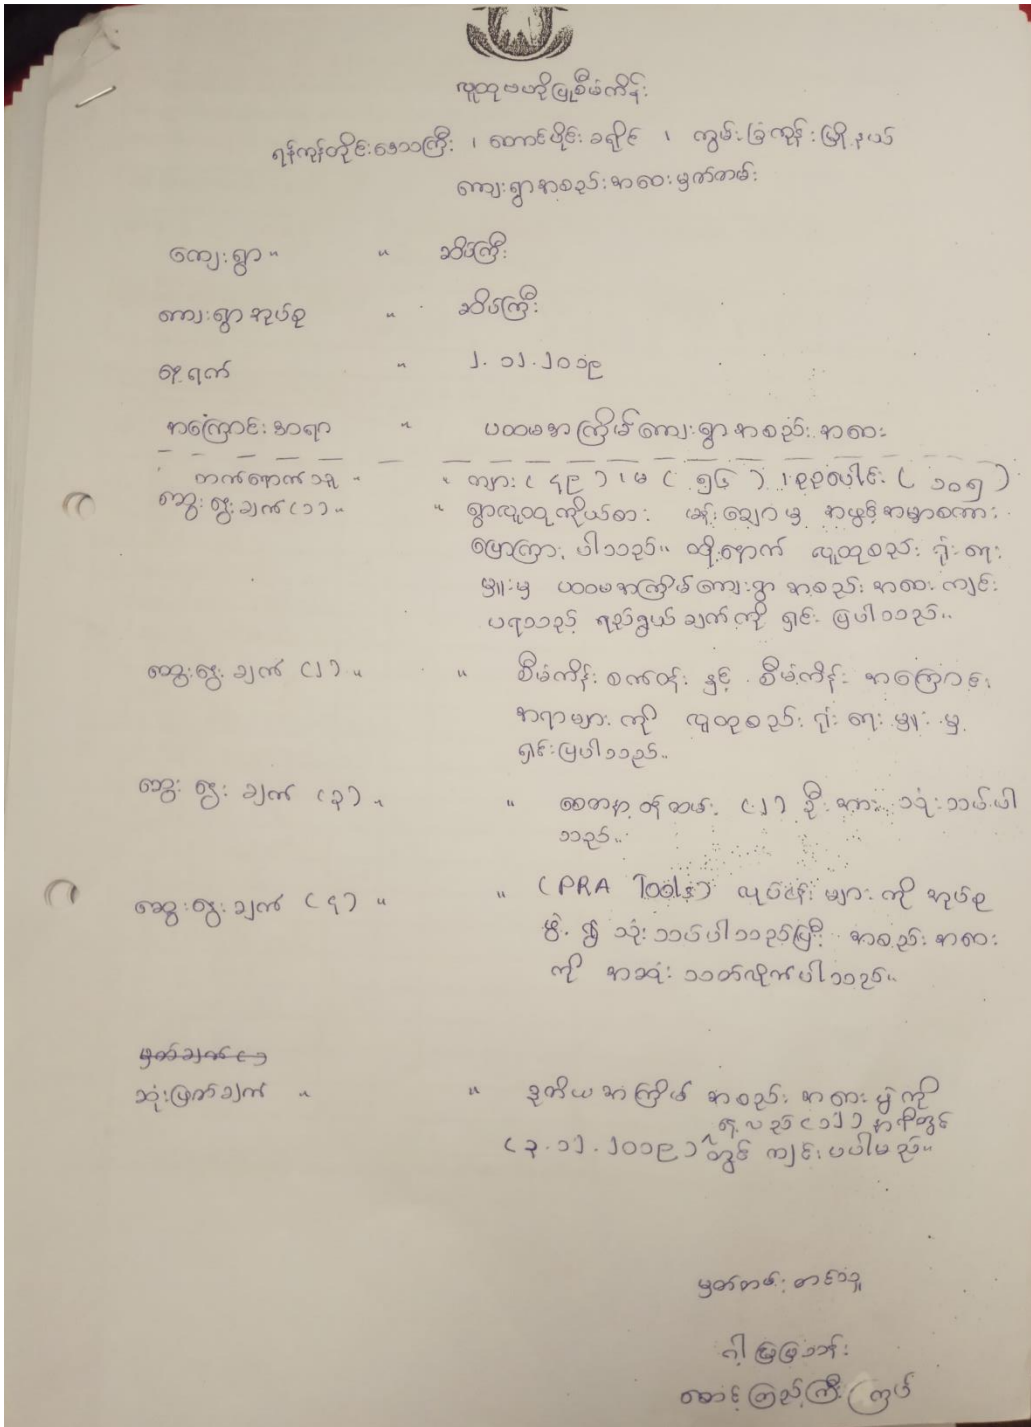 လူထုဗဟိုပြုစီမံကိန်း
ရန်ကုန်တိုင်းဒေသကြီး ၊ တောင်ပိုင်းခရိုင် ၊ ကွမ်းခြံကုန်းမြို့နယ်
ကျေးရွာအစည်းအဝေးမှတ်တမ်း
ကျေးရွာ ။ ။ ဆိပ်ကြီး
ကျေးရွာအုပ်စု ။ ဆိပ်ကြီး
နေ့ရက် ။ ၂.၁၂.၂၀၁၉
အကြောင်းအရာ ။ ပထမအကြိမ်ကျေးရွာအစည်းအဝေး
တက်ရောက်သူ ။ ။ ကျား ( ၄၉ ) ၊ မ ( ၅၆ ) ၊ စုစုပေါင်း ( ၁၀၅ )
ဆွေးနွေးချက် (၁) ။ ။ ရွာလူထုကိုယ်စား မှ အဖွင့်အမှာစကား
ပြောကြားပါသည်။ ထို့နောက် လူထုစည်းရုံးရေး
မှူးမှ ပထမအကြိမ်ကျေးရွာ အစည်းအဝေးကျင်း
ပရသည့် ရည်ရွယ်ချက်ကို ရှင်းပြပါသည်။
ဆွေးနွေးချက် (၂) ။ ။ စီမံကိန်းစက်ဝန်း နှင့် စီမံကိန်း အကြောင်း
အရာများ ကို လူထုစည်းရုံးရေးမှူး မှ
ရှင်းပြပါသည်။
ဆွေးနွေးချက် (၃) ။ ။ စေတနာ့ဝန်ထမ်း (၂) ဦး အား သုံးသပ်ပါ
သည်။
ဆွေးနွေးချက် (၄) ။ ။ (PRA Tools) လုပ်ငန်းများကို အုပ်စု
ဖွဲ့၍ သုံးသပ်ပါသည်ပြီး အစည်းအဝေး
ကို အဆုံးသတ်လိုက်ပါသည်။
ဆုံးဖြတ်ချက် ။ ။ ဒုတိယအကြိမ် အစည်းအဝေးပွဲကို
နေ့လည် (၁၂) နာရီတွင်
(၃.၁၂.၂၀၁၉) တွင် ကျင်းပပါမည်။
မှတ်တမ်းတင်သူ